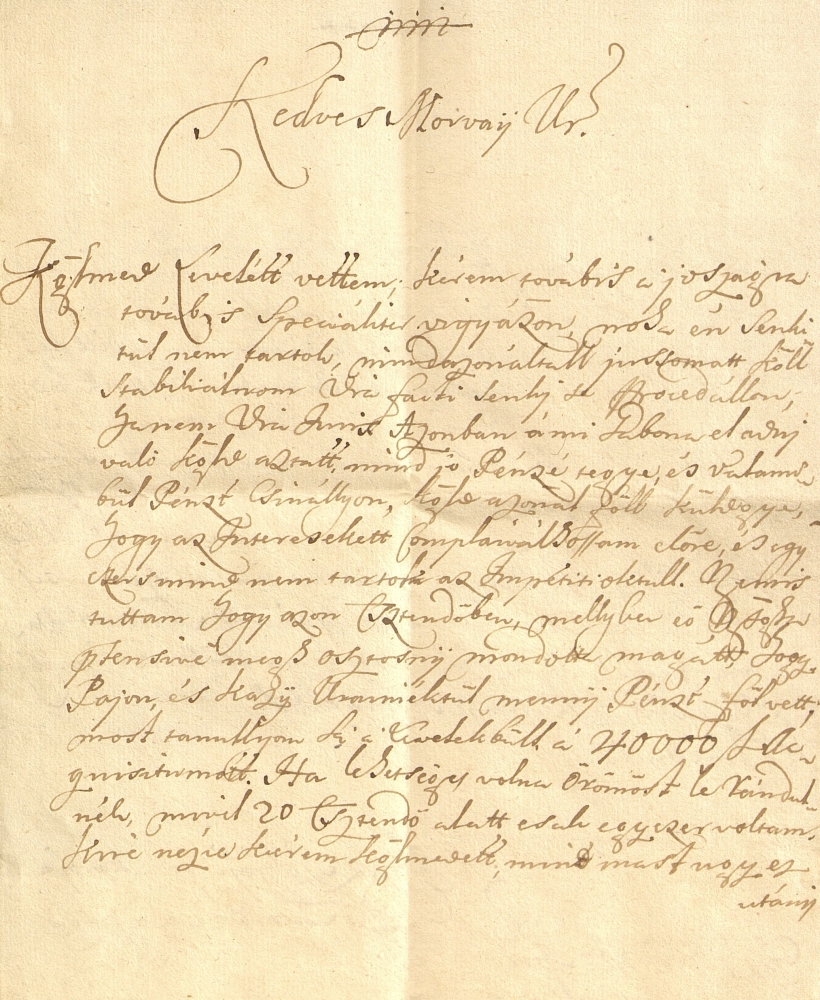 Kedves Morvaij Ur.
Kglmed Levelétt vettem, kérem továbis a joszágra
továbis Speciáliter vigyázon, noha én Senki
tül nem tartok, mindazonáltall jussomatt köll
Stabiliálnom Via facti Senkj se Procedállon,
Hanem Via Juris Azonban á mi Gabona el adnj
való aztatt, mind jó Pénzé tegye, és valami
bül Pénzt Csinállyon, azonal köll küldgye,
hogy az Interesekett elöre, és így
mind nem tartok az Impetitioktull. Nemis
tuttam hogy azon Esztendöben, mellyben eö
osztosnij mondotta magátt, hogy
Pajon, és Uraiméktül mennij Pénzt föl vett,
most tanullyon kj a Levelekbüll á 40000 f
quisitumott. Ha lehetséges volna Örömöst le rándul-
nék, mivel 20 Esztendö alatt csak egyszer voltam.
nézve kérem kglmedett, mind mast ugy ez
utánij